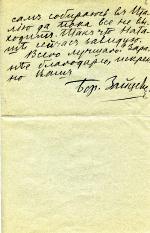 самъ собираюсь въ Ита-
лію да пока все не вы-
ходитъ. Такъ что Ната-
шѣ сейчасъ завидую.
Всего лучшаго. Зара-
нѣе благодарю, искрен-
но Вашъ
Бор. Зайцевъ